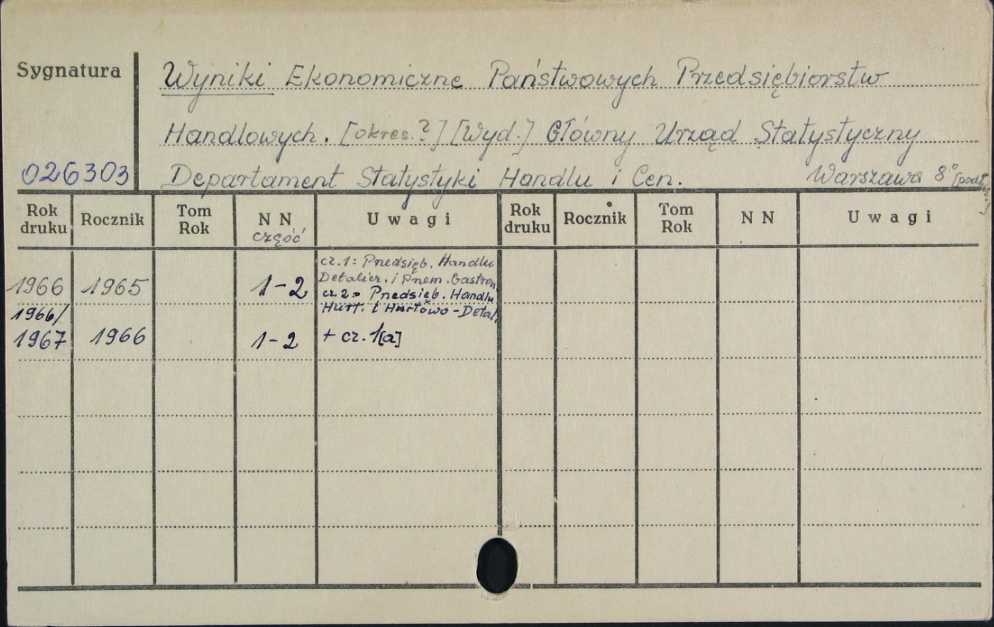 Sygnatura
Wyniki Ekonomiczne Państwowych Przedsiębiorstw
Handlowych. [okres.?] [Wyd.] Główny Urząd Statystyczny
026303 Departament Statystyki Handlu i Cen. Warszawa 8°
Rok druku Rocznik Tom Rok N N część Uwagi Rok druku Rocznik Tom Rok N N Uwagi
cz.1: Przedsięb. Handlu
Detalicz. i Przem. Gastron.
1966 1965 1-2 cz 2: Przedsięb. Handlu
1966/ Hurt. i Hurtowo-Detal.
1967 1966 1-2 + cz. 1[a]